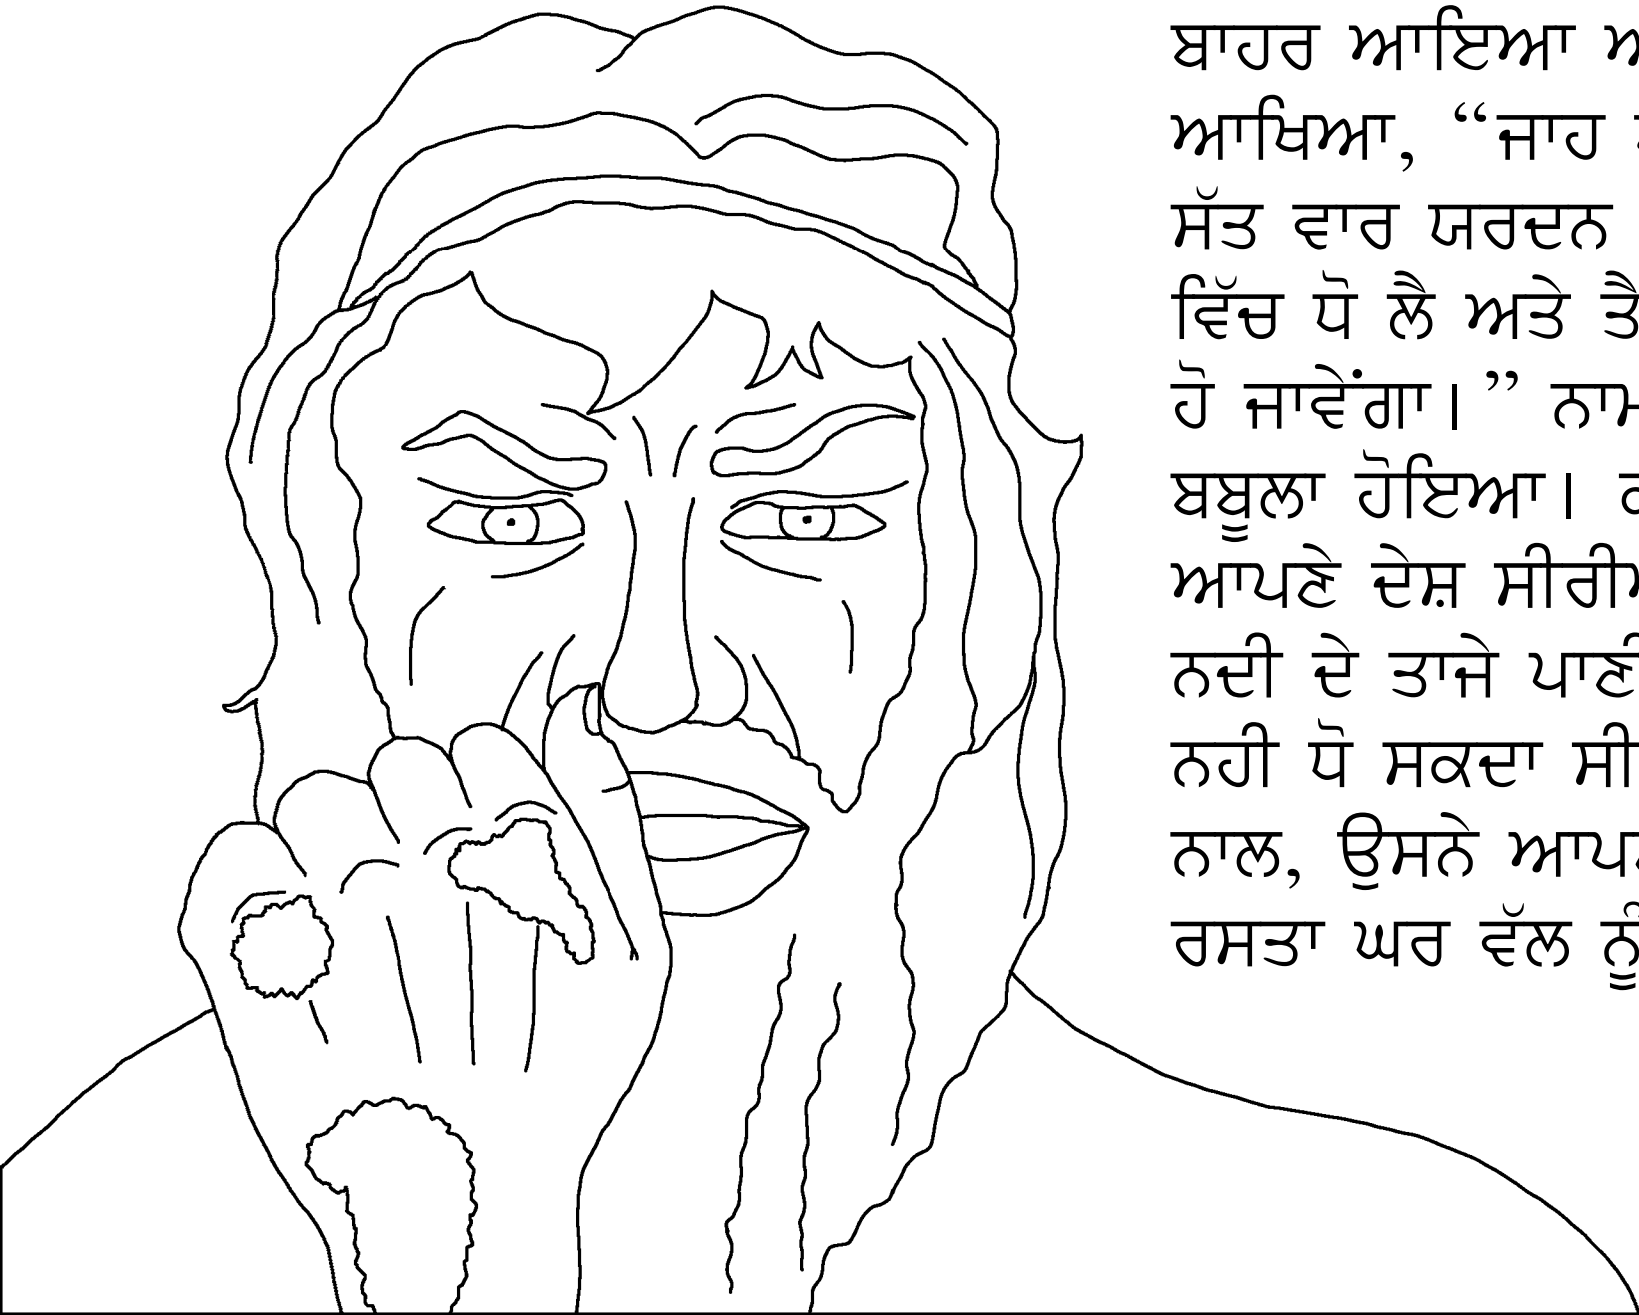 ਬਾਹਰ ਆਇਆ
ਆਖਿਆ, “ਜਾਹ
ਸੱਤ ਵਾਰ ਯਰਦਨ
ਵਿੱਚ ਧੋ ਲੈ ਅਤੇ
ਹੋ ਜਾਵੇਂਗਾ।”
ਬਬੂਲਾ ਹੋਇਆ।
ਆਪਣੇ ਦੇਸ਼
ਨਦੀ ਦੇ ਤਾਜੇ
ਨਹੀ ਧੋ ਸਕਦਾ ਸੀ
ਨਾਲ, ਉਸਨੇ
ਰਸਤਾ ਘਰ ਵੱਲ ਨੂੰ